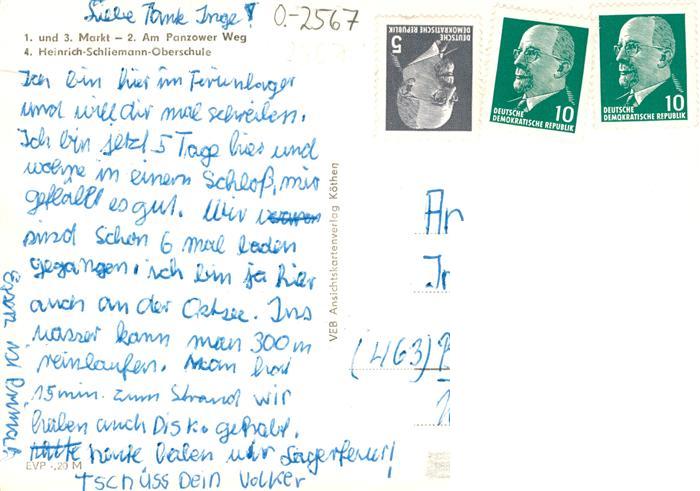 Liebe Tante Inge!
O.-2567
1. und 3. Markt – 2. Am Panzower Weg
4. Heinrich-Schliemann-Oberschule
Ich bin hier im Ferienlager
und will dir mal schreiben.
Ich bin jetzt 5 Tage hier und
wohne in einem Schloß, mir
gefällt es gut. Wir waren
sind schon 6 mal baden
gegangen, ich bin ja hier
auch an der Ostsee. Ins
wasser kann man 300m
reinlaufen. Man hat
15min. zum Strand wir
haben auch Disko gehabt.
heute haben wir Lagerfeuer!
Tschüss Dein Volker
Essen ist
EVP -,20 M
VEB Ansichtskartenverlag Köthen
DEUTSCHE
DEMOKRATISCHE REPUBLIK
5
10
DEUTSCHE
DEMOKRATISCHE REPUBLIK
10
DEUTSCHE
DEMOKRATISCHE REPUBLIK
An
(463)